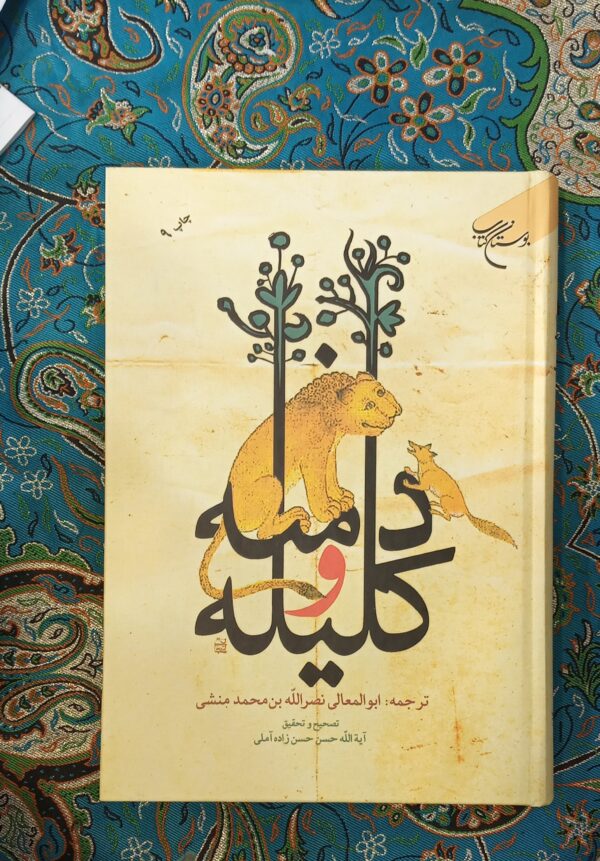 بوستان کتاب
چاپ ۹
کلیله و دمنه
ترجمه: ابوالمعالی نصرالله بن محمد منشی
تصحیح و تحقیق
آیة الله حسن حسن زاده آملی